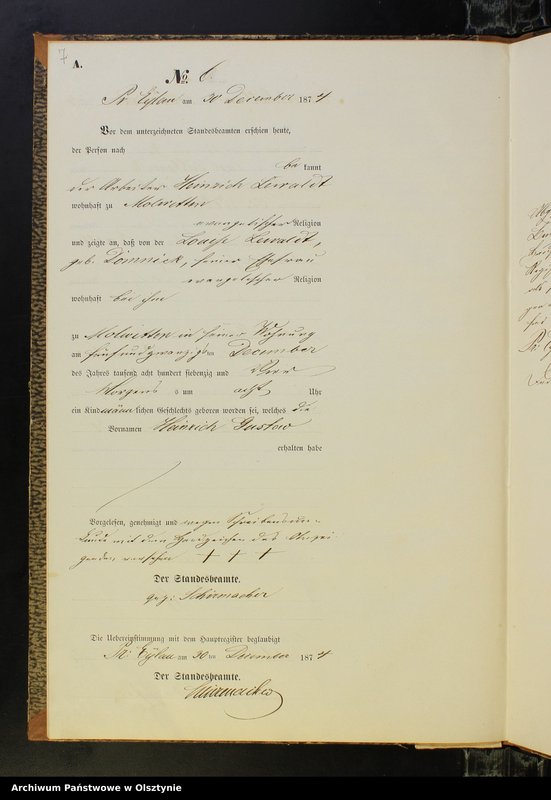 7
A.
No. 6
Pr. Eylau am 30 December 1874
Vor dem unterzeichneten Standesbeamten erschien heute,
der Person nach
be kannt
der Arbeiter Heinrich Lewaldt
wohnhaft zu Molwitten
evangelischer Religion
und zeigte an, daß von der Louise Lewaldt,
geb. Domnick, seiner Ehefrau
evangelischer Religion
wohnhaft bei ihm
zu Molwitten in seiner Wohnung
am fünfundzwanzigsten December
des Jahres tausend acht hundert siebenzig und vier
Morgens s um acht Uhr
ein Kind männlichen Geschlechts geboren worden sei, welches die
Vornamen Heinrich Gustav
erhalten habe
Vorgelesen, genehmigt und wegen Schreibensun-
kunde mit dem Handzeichen des Anzei-
genden versehen + + +
Der Standesbeamte.
gez: Schirmacher
Die Uebereinstimmung mit dem Hauptregister beglaubigt
Pr. Eylau am 30 ten December 1874
Der Standesbeamte.
Schirmacher
Archiwum Państwowe w Olsztynie